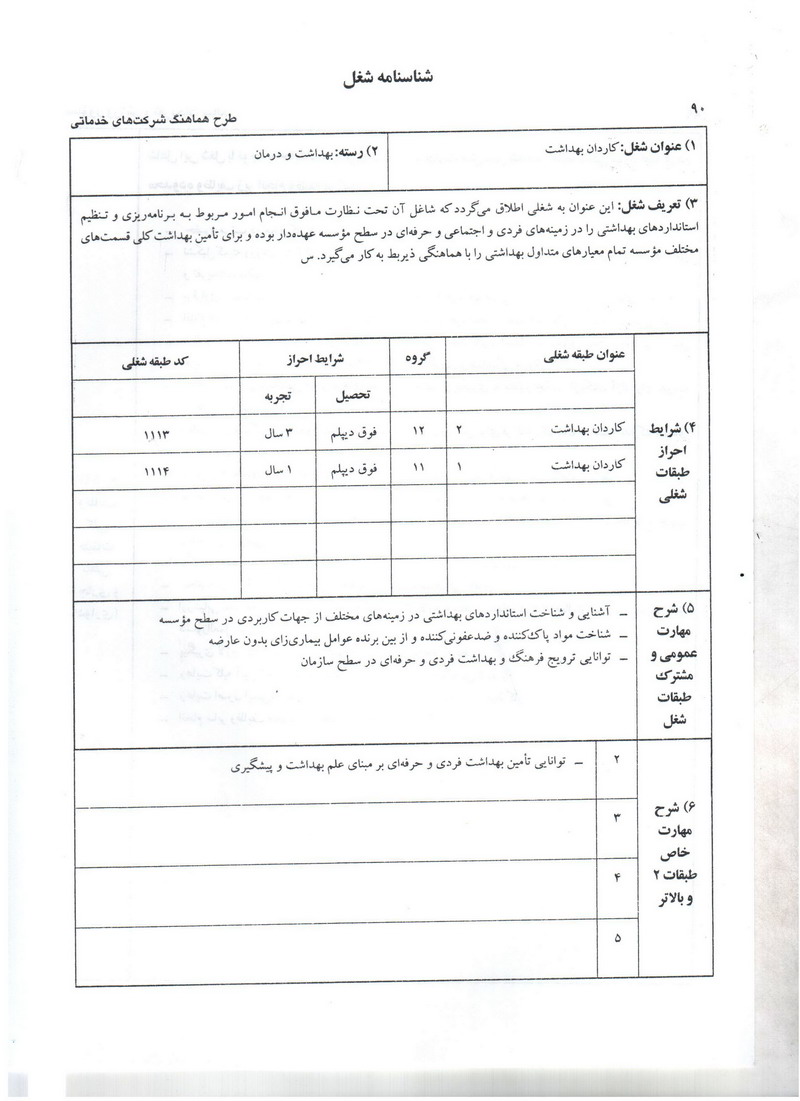 شناسنامه شغل
۹۰
طرح هماهنگ شرکت‌های خدماتی
۱) عنوان شغل: کاردان بهداشت
۲) رسته: بهداشت و درمان
۳) تعریف شغل: این عنوان به شغلی اطلاق می‌گردد که شاغل آن تحت نظارت مافوق انجام امور مربوط به برنامه‌ریزی و تنظیم
استانداردهای بهداشتی را در زمینه‌های فردی و اجتماعی و حرفه‌ای در سطح مؤسسه عهده‌دار بوده و برای تأمین بهداشت کلی قسمت‌های
مختلف مؤسسه تمام معیارهای متداول بهداشتی را با هماهنگی ذیربط به کار می‌گیرد. س
۴) شرایط
احراز
طبقات
شغلی
عنوان طبقه شغلی گروه شرایط احراز کد طبقه شغلی
تحصیل تجربه
کاردان بهداشت ۲ ۱۲ فوق دیپلم ۳ سال ۱۱۱۳
کاردان بهداشت ۱ ۱۱ فوق دیپلم ۱ سال ۱۱۱۴
۵) شرح
مهارت
عمومی و
مشترک
طبقات
شغل
– آشنایی و شناخت استانداردهای بهداشتی در زمینه‌های مختلف از جهات کاربردی در سطح مؤسسه
– شناخت مواد پاک‌کننده و ضدعفونی‌کننده و از بین برنده عوامل بیماری‌زای بدون عارضه
– توانایی ترویج فرهنگ و بهداشت فردی و حرفه‌ای در سطح سازمان
۶) شرح
مهارت
خاص
طبقات ۲
و بالاتر
۲ – توانایی تأمین بهداشت فردی و حرفه‌ای بر مبنای علم بهداشت و پیشگیری
۳
۴
۵